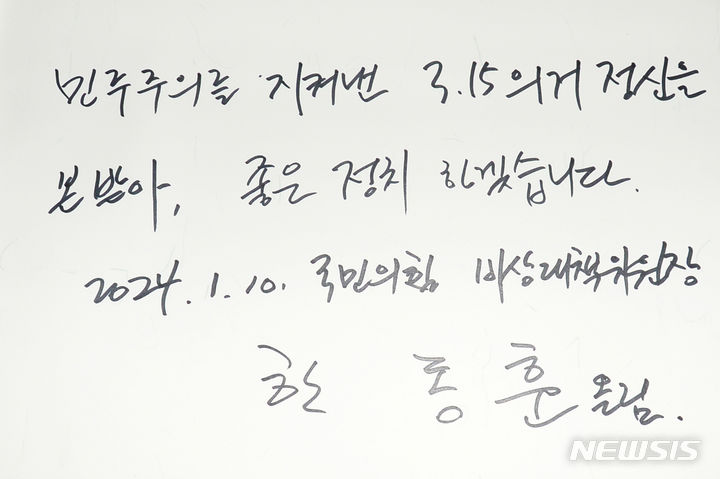 민주주의를 지켜낸 3.15의거 정신을
본받아, 좋은 정치 하겠습니다.
2024. 1. 10. 국민의힘 비상대책위원장
한 동 훈 올림.
NEWSIS